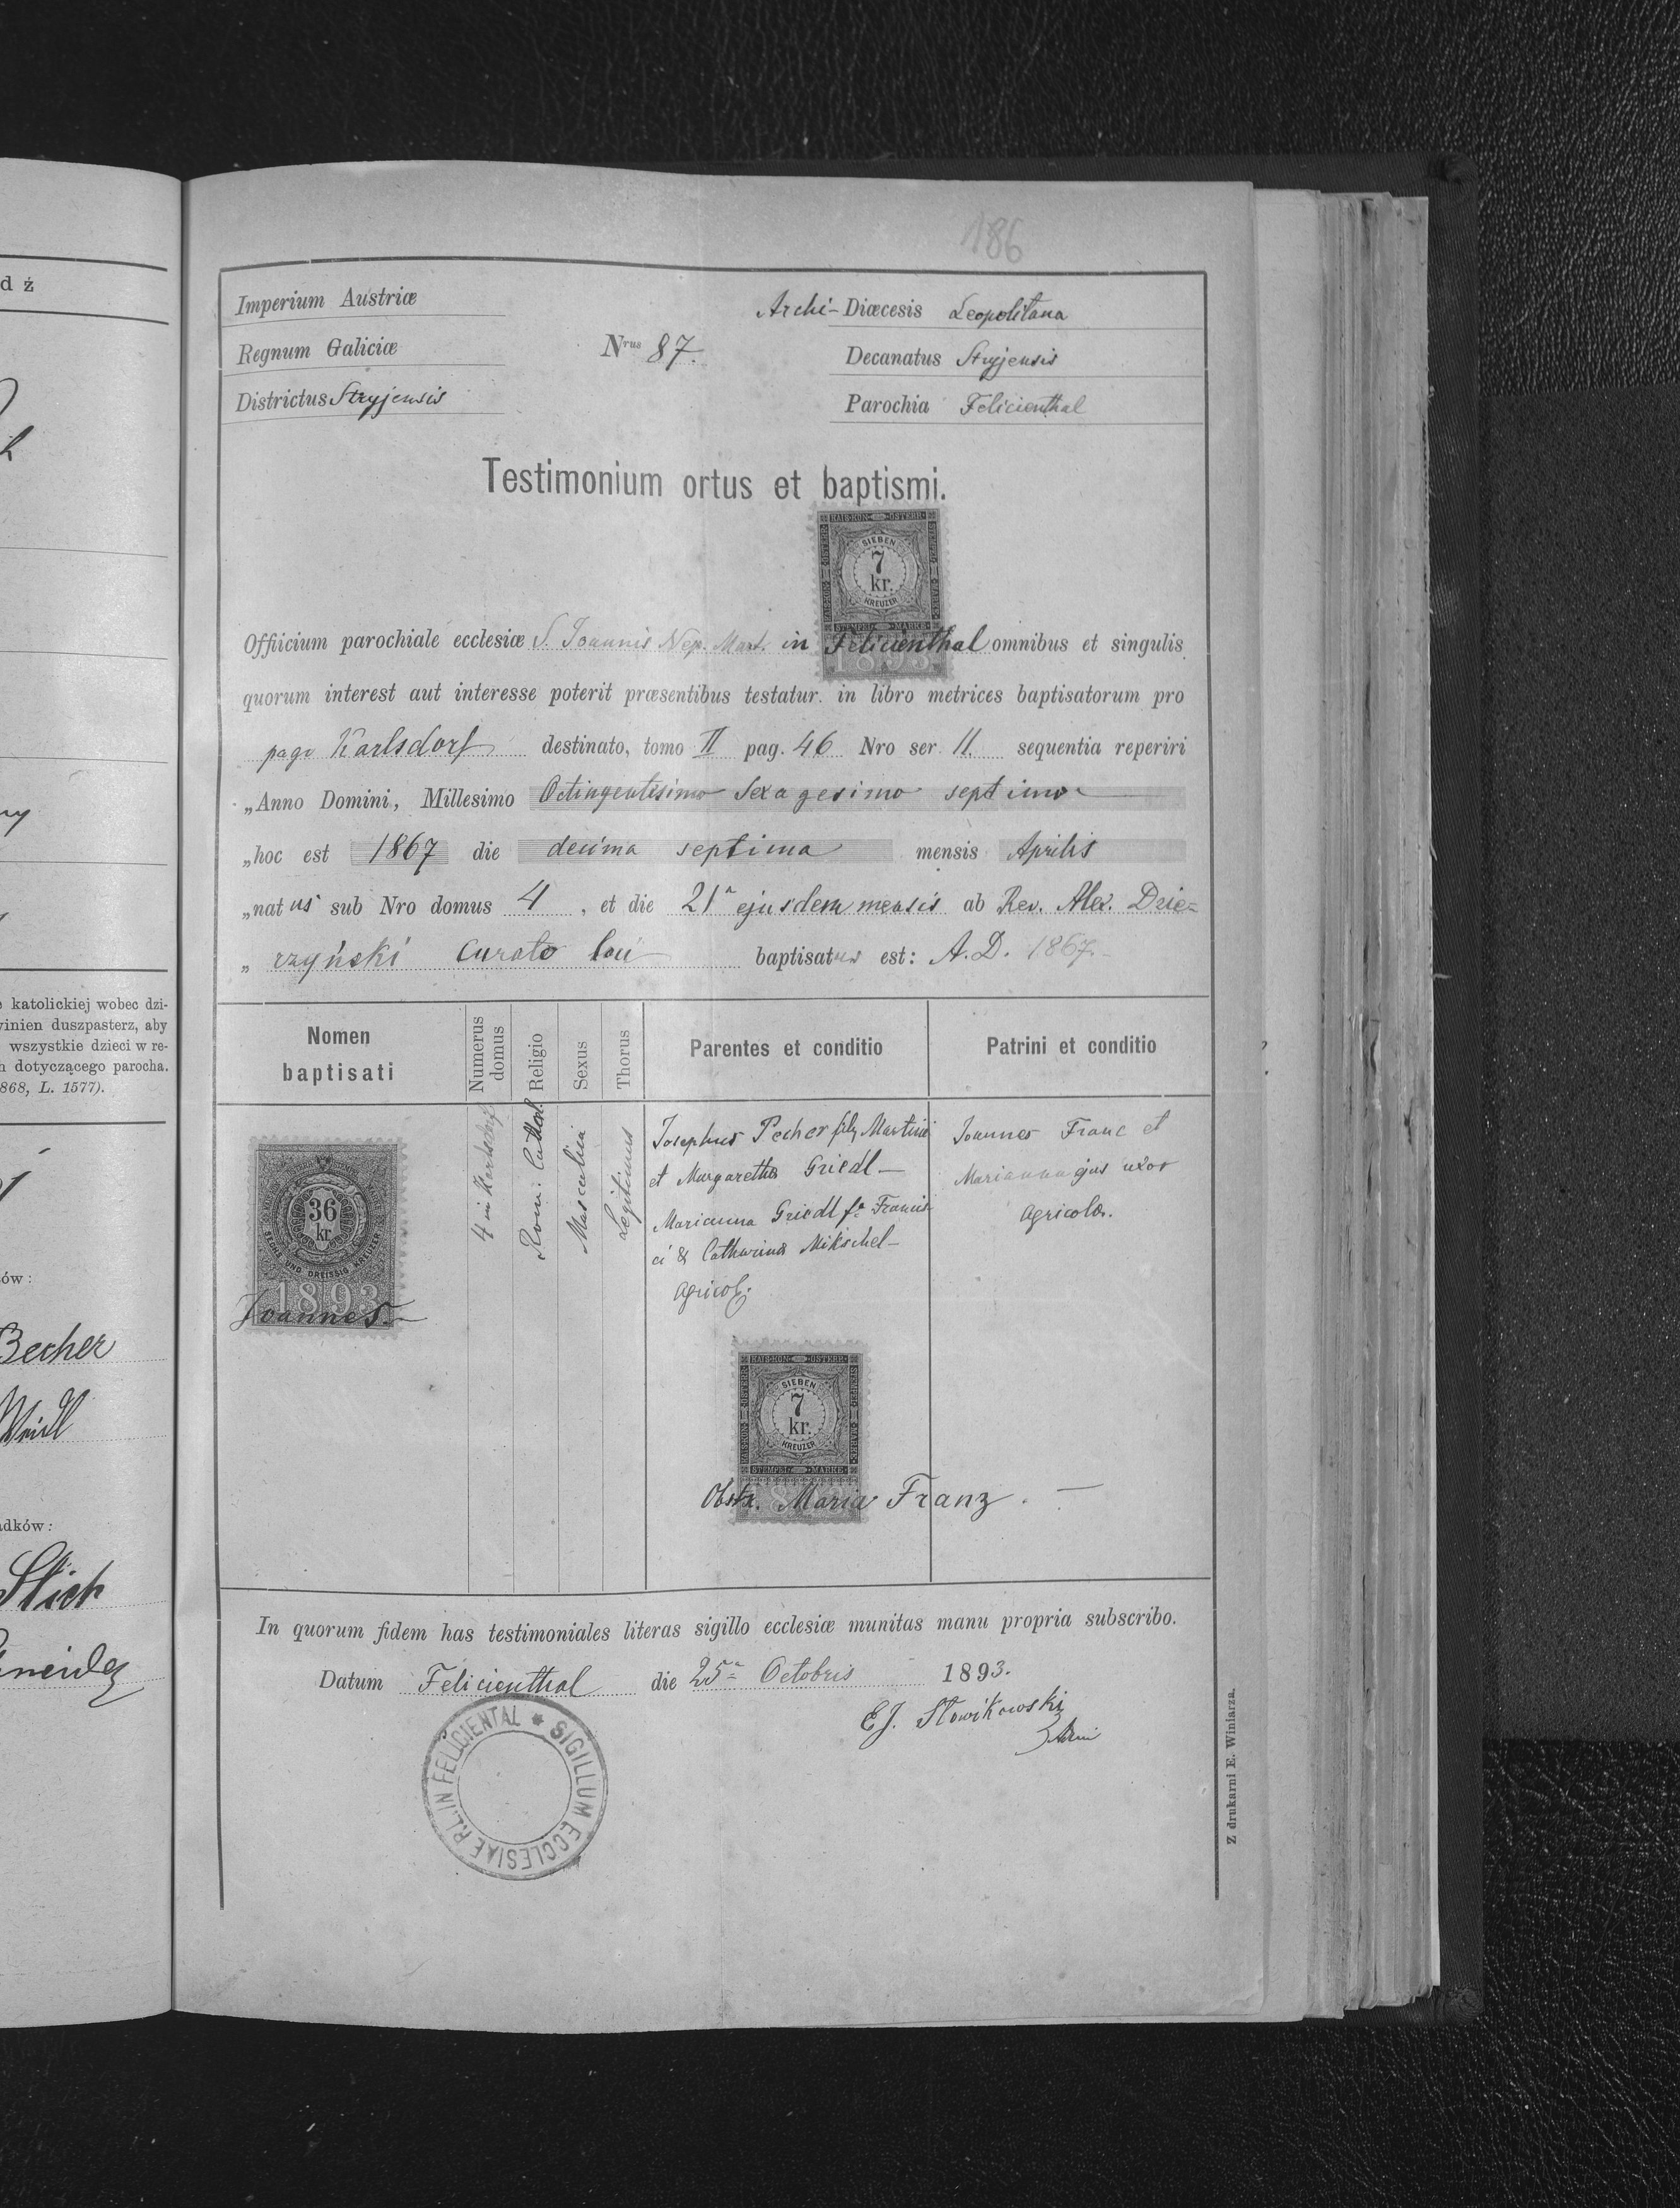 d ź
Becher
ów:
adków:
Slich
e katolickiej wobec dzi-
winien duszpasterz, aby
wszystkie dzieci w re-
h dotyczącego parocha.
868, L. 1577).
186
Imperium Austriæ
Regnum Galiciæ
Districtus Stryjensis
Nrus 87.
Archi-Diœcesis Leopolitana
Decanatus Stryjensis
Parochia Felicienthal
Testimonium ortus et baptismi.
KAIS·KÖN· ÖSTERR·
SIEBEN
7
kr.
KREUZER
STEMPEL MARKE
1893
Offiicium parochiale ecclesiæ S. Joannis Nep. Mart. in Felicienthal omnibus et singulis
quorum interest aut interesse poterit præsentibus testatur. in libro metrices baptisatorum pro
pago Karlsdorf destinato, tomo II pag. 46 Nro ser. 11. sequentia reperiri
„Anno Domini, Millesimo Octingentesimo Sexagesimo septimo
„hoc est 1867 die decima septima mensis Aprilis
„natus sub Nro domus 4, et die 21a ejusdem mensis ab Rev. Alex. Dzie=
„rzyński Curato loci baptisatus est: A. D. 1867.
Nomen baptisati
Numerus domus
Religio
Sexus
Thorus
Parentes et conditio
Patrini et conditio
36
kr
SECHS UND DREISSIG KREUZER
1893
Joannes
4 in Karlsdorf
Rom: Cathol.
Masculini
Legitimus
Josephus Pecher fil. Martini
et Margaretha Griedl
Marianna Griedl fa Francis
ci & Catharina Mikschel
agricol.
Joannes Franc et
Marianna ejus uxor
agricolæ.
KAIS·KÖN· ÖSTERR·
SIEBEN
7
kr.
KREUZER
STEMPEL MARKE
1893
Obstx. Maria Franz.
In quorum fidem has testimoniales literas sigillo ecclesiæ munitas manu propria subscribo.
Datum Felicienthal die 25a Octobris 1893.
E. J. Słowikowski
SIGILLUM ECCLESIAE R.L. IN FELICIENTAL *
Z drukarni E. Winiarza.